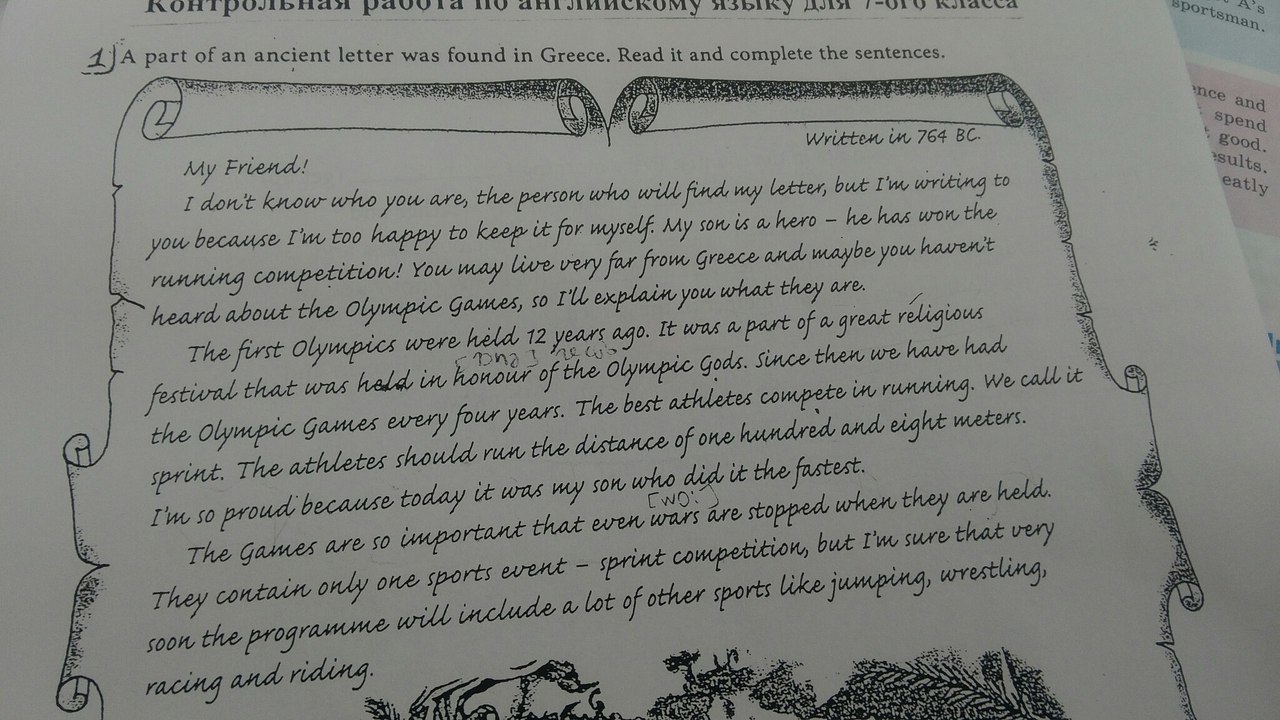 Контрольная работа по английскому языку для 7-ого класса
1) A part of an ancient letter was found in Greece. Read it and complete the sentences.
Written in 764 BC.
My Friend!
I don't know who you are, the person who will find my letter, but I'm writing to
you because I'm too happy to keep it for myself. My son is a hero – he has won the
running competition! You may live very far from Greece and maybe you haven't
heard about the Olympic Games, so I'll explain you what they are.
The first Olympics were held 12 years ago. It was a part of a great religious
festival that was held in honour of the Olympic Gods. Since then we have had
the Olympic Games every four years. The best athletes compete in running. We call it
sprint. The athletes should run the distance of one hundred and eight meters.
I'm so proud because today it was my son who did it the fastest.
[wo:]
The Games are so important that even wars are stopped when they are held.
They contain only one sports event – sprint competition, but I'm sure that very
soon the programme will include a lot of other sports like jumping, wrestling,
racing and riding.
A's
sportsman.
and
spend
good.